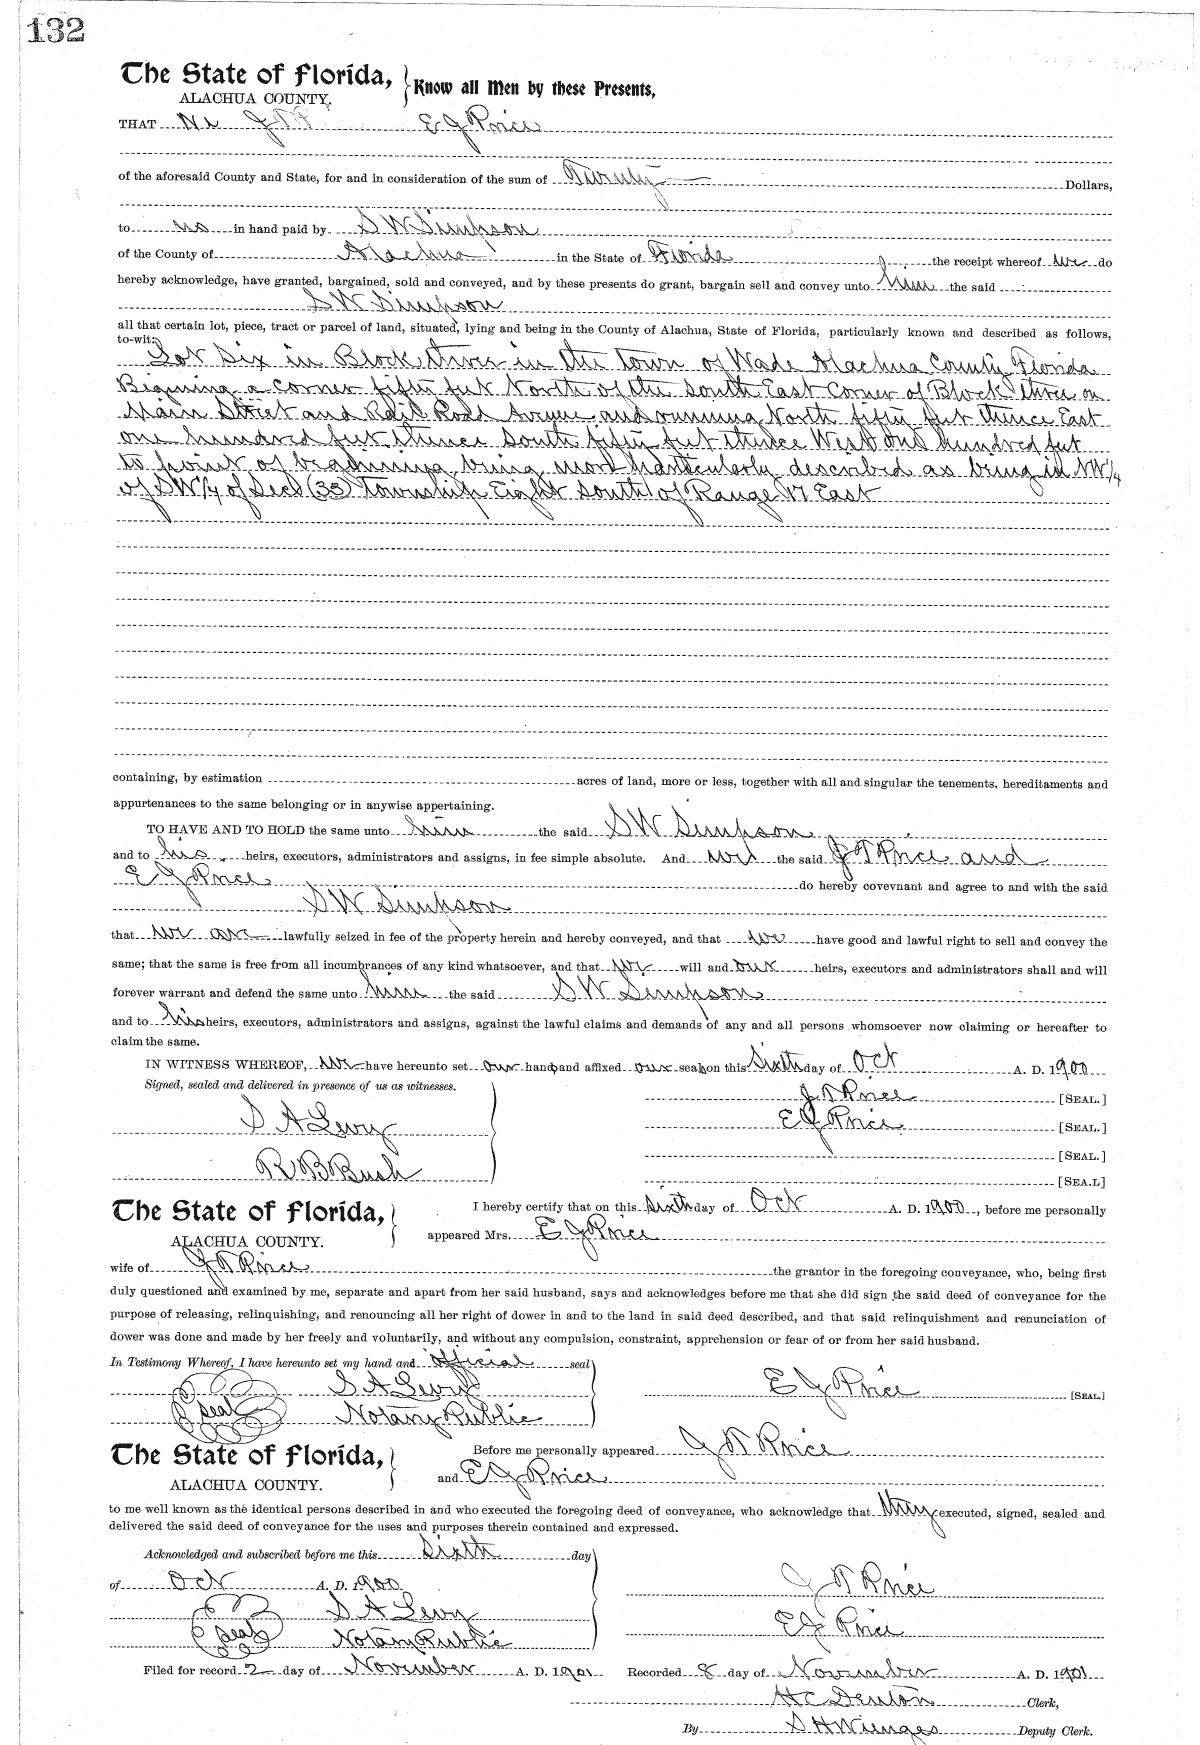 132
The State of Florida,
ALACHUA COUNTY.
Know all Men by these Presents,
THAT We J T E J Price
of the aforesaid County and State, for and in consideration of the sum of Twenty Dollars,
to us in hand paid by S W Simpson
of the County of Alachua in the State of Florida the receipt whereof we do
hereby acknowledge, have granted, bargained, sold and conveyed, and by these presents do grant, bargain sell and convey unto him the said
S W Simpson
all that certain lot, piece, tract or parcel of land, situated, lying and being in the County of Alachua, State of Florida, particularly known and described as follows,
to-wit:
Lot Six in Block three in the town of Wade Alachua County Florida
Begining a corner fifty feet North of the South East Corner of Block three on
Main Street and Rail Road Avenue and running North fifty feet thence East
one hundred feet thence South fifty feet thence West one hundred feet
to point of beginning being more particularly described as being in NW 1/4
of SW 1/4 of Sec (33) Township Eight South of Range 17 East
containing, by estimation acres of land, more or less, together with all and singular the tenements, hereditaments and
appurtenances to the same belonging or in anywise appertaining.
TO HAVE AND TO HOLD the same unto him the said S W Simpson
and to his heirs, executors, administrators and assigns, in fee simple absolute. And we the said J T Price and
E J Price do hereby covevnant and agree to and with the said
S W Simpson
that we are lawfully seized in fee of the property herein and hereby conveyed, and that we have good and lawful right to sell and convey the
same; that the same is free from all incumbrances of any kind whatsoever, and that we will and our heirs, executors and administrators shall and will
forever warrant and defend the same unto him the said S W Simpson
and to his heirs, executors, administrators and assigns, against the lawful claims and demands of any and all persons whomsoever now claiming or hereafter to
claim the same.
IN WITNESS WHEREOF, We have hereunto set our hands and affixed our seals on this Sixth day of Oct A. D. 1900
Signed, sealed and delivered in presence of us as witnesses.
J T Price [SEAL.]
S A Levy
E J Price [SEAL.]
[SEAL.]
R B Bush
[SEA.L]
The State of Florida,
ALACHUA COUNTY.
I hereby certify that on this Sixth day of Oct A. D. 1900, before me personally
appeared Mrs. E J Price
wife of J T Price the grantor in the foregoing conveyance, who, being first
duly questioned and examined by me, separate and apart from her said husband, says and acknowledges before me that she did sign the said deed of conveyance for the
purpose of releasing, relinquishing, and renouncing all her right of dower in and to the land in said deed described, and that said relinquishment and renunciation of
dower was done and made by her freely and voluntarily, and without any compulsion, constraint, apprehension or fear of or from her said husband.
In Testimony Whereof, I have hereunto set my hand and official seal
S A Levy
E J Price [SEAL]
Seal Notary Public
The State of Florida,
ALACHUA COUNTY.
Before me personally appeared J T Price
and E J Price
to me well known as the identical persons described in and who executed the foregoing deed of conveyance, who acknowledge that they executed, signed, sealed and
delivered the said deed of conveyance for the uses and purposes therein contained and expressed.
Acknowledged and subscribed before me this Sixth day
of Oct A. D. 1900
J T Price
S A Levy
E J Price
Seal Notary Public
Filed for record 2 day of November A. D. 1901 Recorded 8 day of November A. D. 1901
H C Denton Clerk,
By S H Wienges Deputy Clerk.